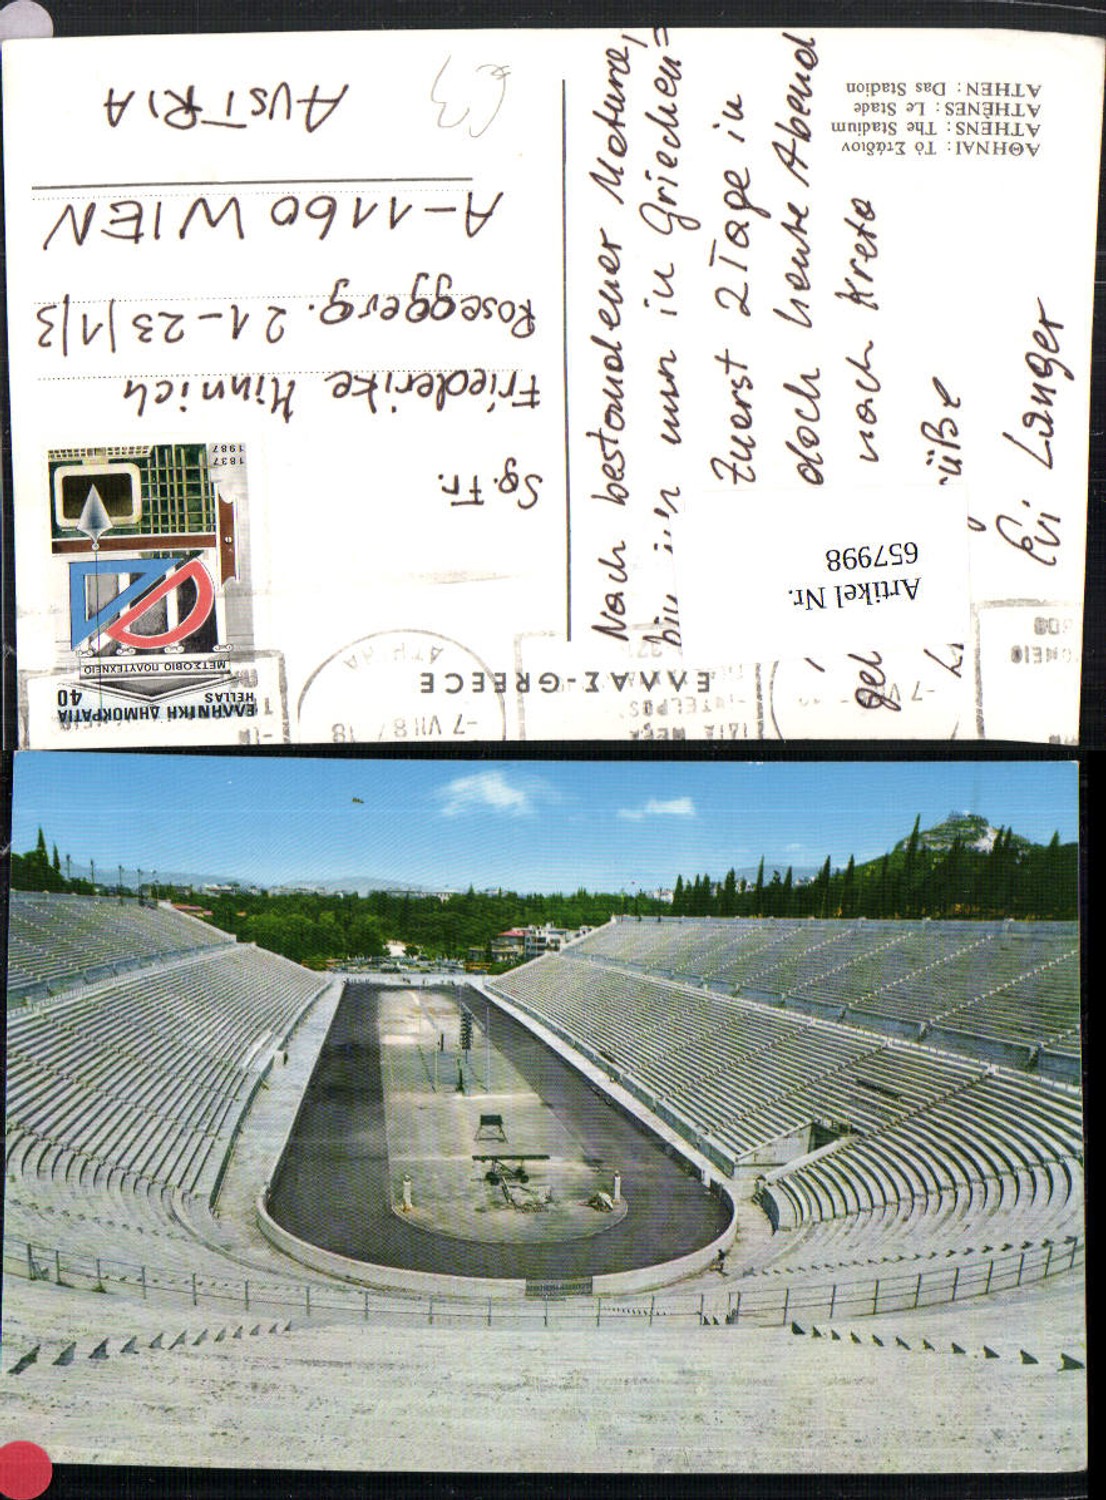 ΑΘΗΝΑΙ : Τὸ Στάδιον
ATHENS : The Stadium
ATHÈNES : Le Stade
ATHEN : Das Stadion
Nach bestandener Matura,
bin ich nun in Griechen=
Zuerst 2 Tage in
doch heute Abend
nach Kreta
üße
Evi Langer
Artikel Nr.
657998
ΕΛΛΑΣ-GREECE
ΕΛΛΗΝΙΚΗ ΔΗΜΟΚΡΑΤΙΑ
HELLAS
40
ΜΕΤΣΟΒΙΟ ΠΟΛΥΤΕΧΝΕΙΟ
1837
1987
-7 VII 87 18
Sg. Fr.
Friederike Minnich
Roseggerg. 21-23/1/3
A-1160 WIEN
AUSTRIA
€3